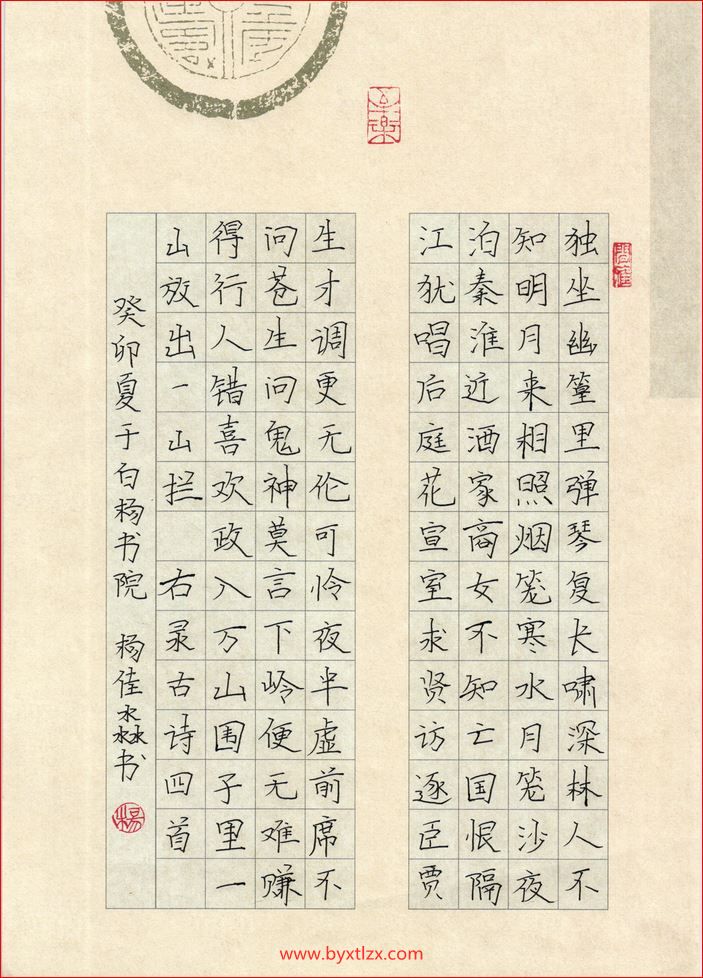 独坐幽篁里弹琴复长啸深林人不
知明月来相照烟笼寒水月笼沙夜
泊秦淮近酒家商女不知亡国恨隔
江犹唱后庭花宣室求贤访逐臣贾
生才调更无伦可怜夜半虚前席不
问苍生问鬼神莫言下岭便无难赚
得行人错喜欢政入万山围子里一
山放出一山拦 右录古诗四首
癸卯夏于白杨书院 杨佳淼书
杨
www.byxtlzx.com